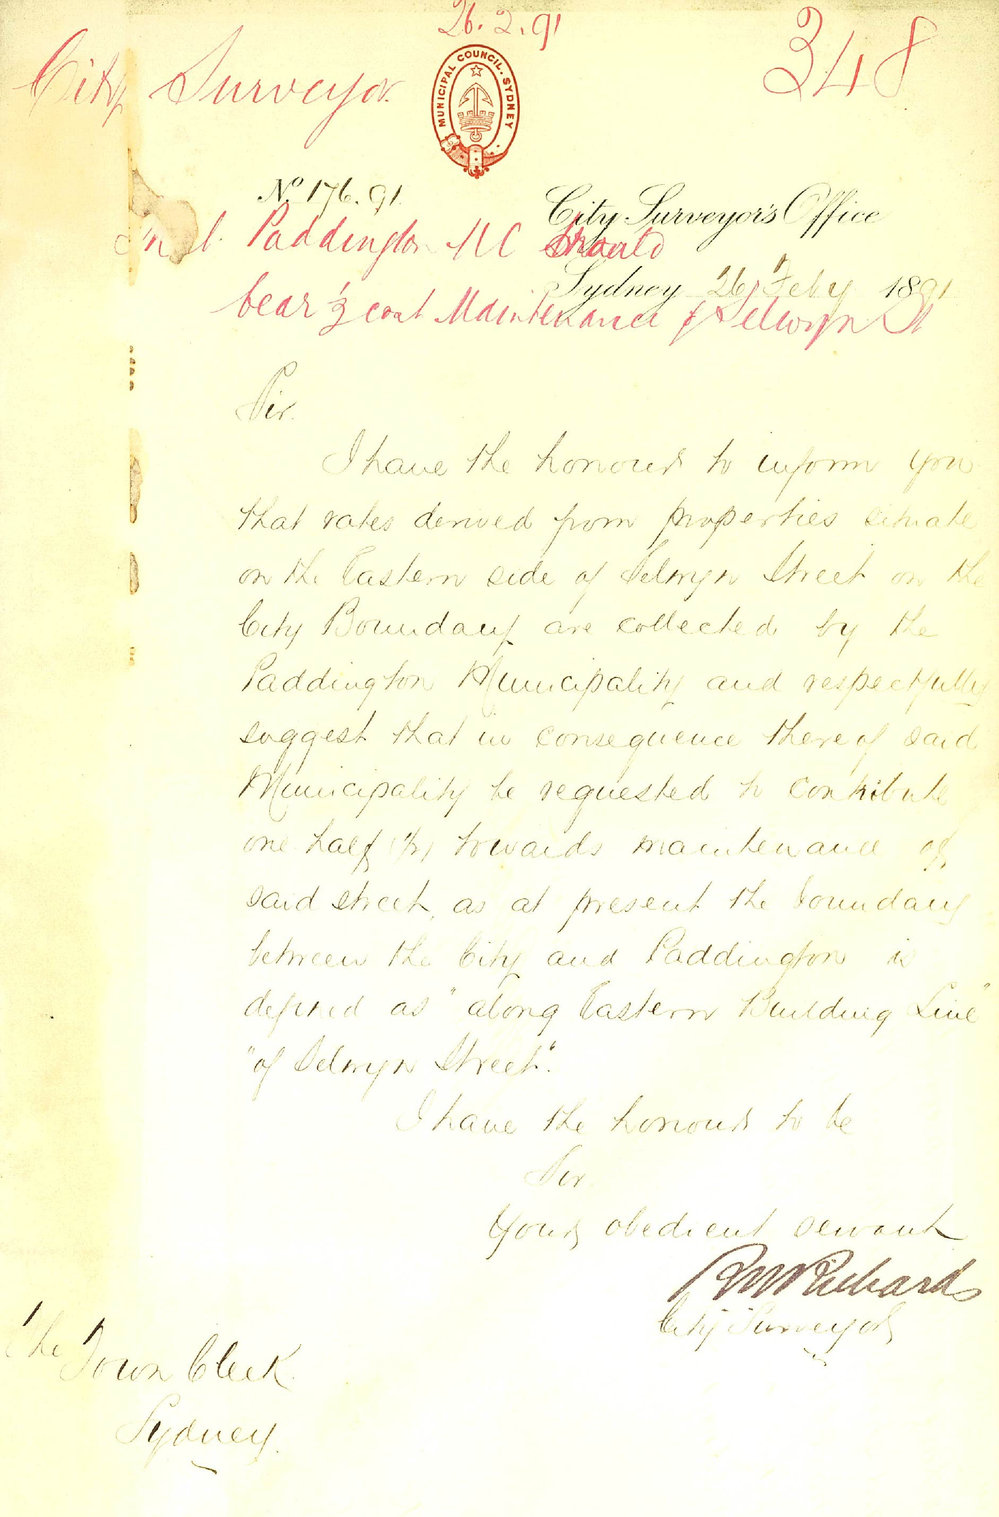 26.2.91
City Surveyor
348
MUNICIPAL COUNCIL. SYDNEY
No 176.91
City Surveyor's Office
Paddington MC should
Sydney 26 Feby 1891
bear ½ cost Maintenance of Selwyn St
Sir.
I have the honour to inform you
that rates derived from properties situate
on the Eastern side of Selwyn Street on the
City Boundary are collected by the
Paddington Municipality and respectfully
suggest that in consequence thereof said
Municipality be requested to contribute
one half (½) towards maintenance of
said street, as at present the boundary
between the City and Paddington is
defined as "along Eastern Building Line"
"of Selwyn Street".
I have the honour to be
Sir
Your obedient servant
RWRichards
City Surveyor
The Town Clerk
Sydney.